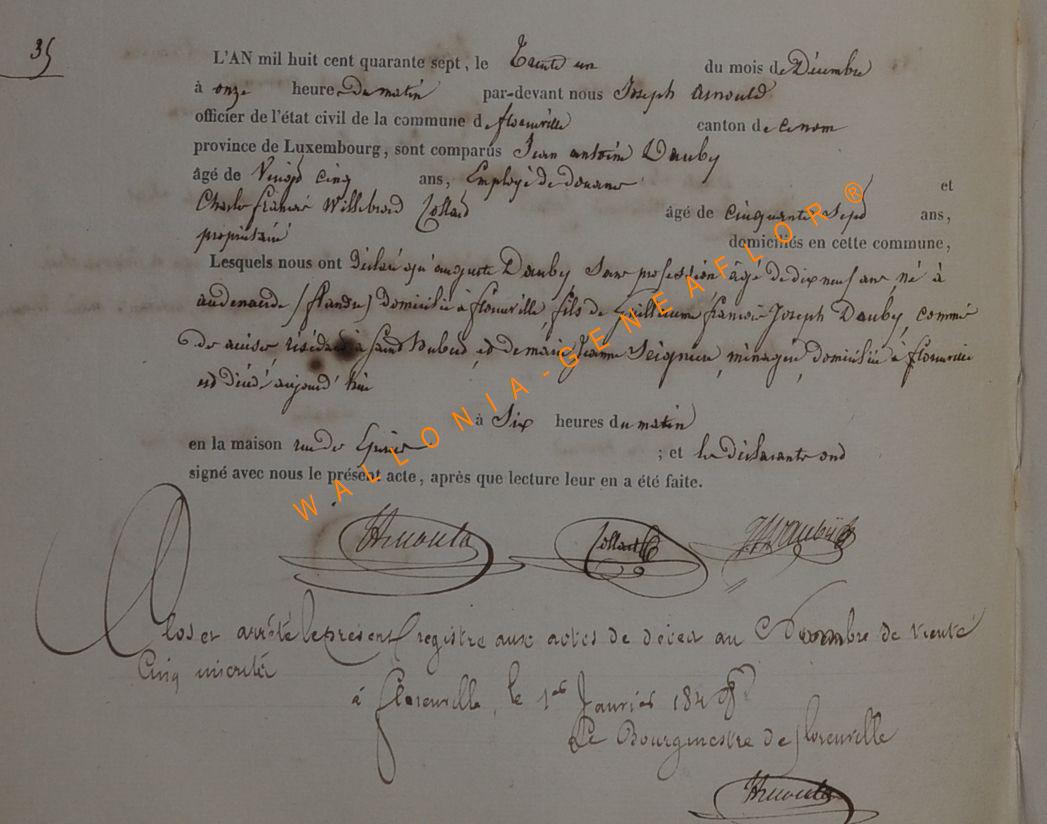 35
L'AN mil huit cent quarante sept, le Trente un du mois de Décembre
à onze heure du matin par-devant nous Joseph Arnould
officier de l'état civil de la commune de florenville canton de
province de Luxembourg, sont comparus Jean antoine Dauby
âgé de Vingt cinq ans, Employé de douane et
Charle françois Willebrord Collard âgé de cinquante Sept ans,
propriétaire domiciliés en cette commune,
Lesquels nous ont déclaré qu'auguste Dauby Sans profession âgé de dix neuf ans, né à
audenarde (flandre) domicilié à florenville, fils de Guillaume françois Joseph Dauby, commis
de accises, résidant à Saint hubert, et de marie Jeanne Seigneur, ménagère, domiciliée à florenville
est décédé aujourd'hui
à Six heures du matin
en la maison rue de ; et les déclarants ont
signé avec nous le présent acte, après que lecture leur en a été faite.
Arnould Collard Dauby
Clos et arrêté le présent registre aux actes de décès au Nombre de trente
Cinq inscrits
à florenville, le 1er Janvier 1848
Le Bourgmestre de florenville
Arnould
WALLONIA-GENEAFLOR®